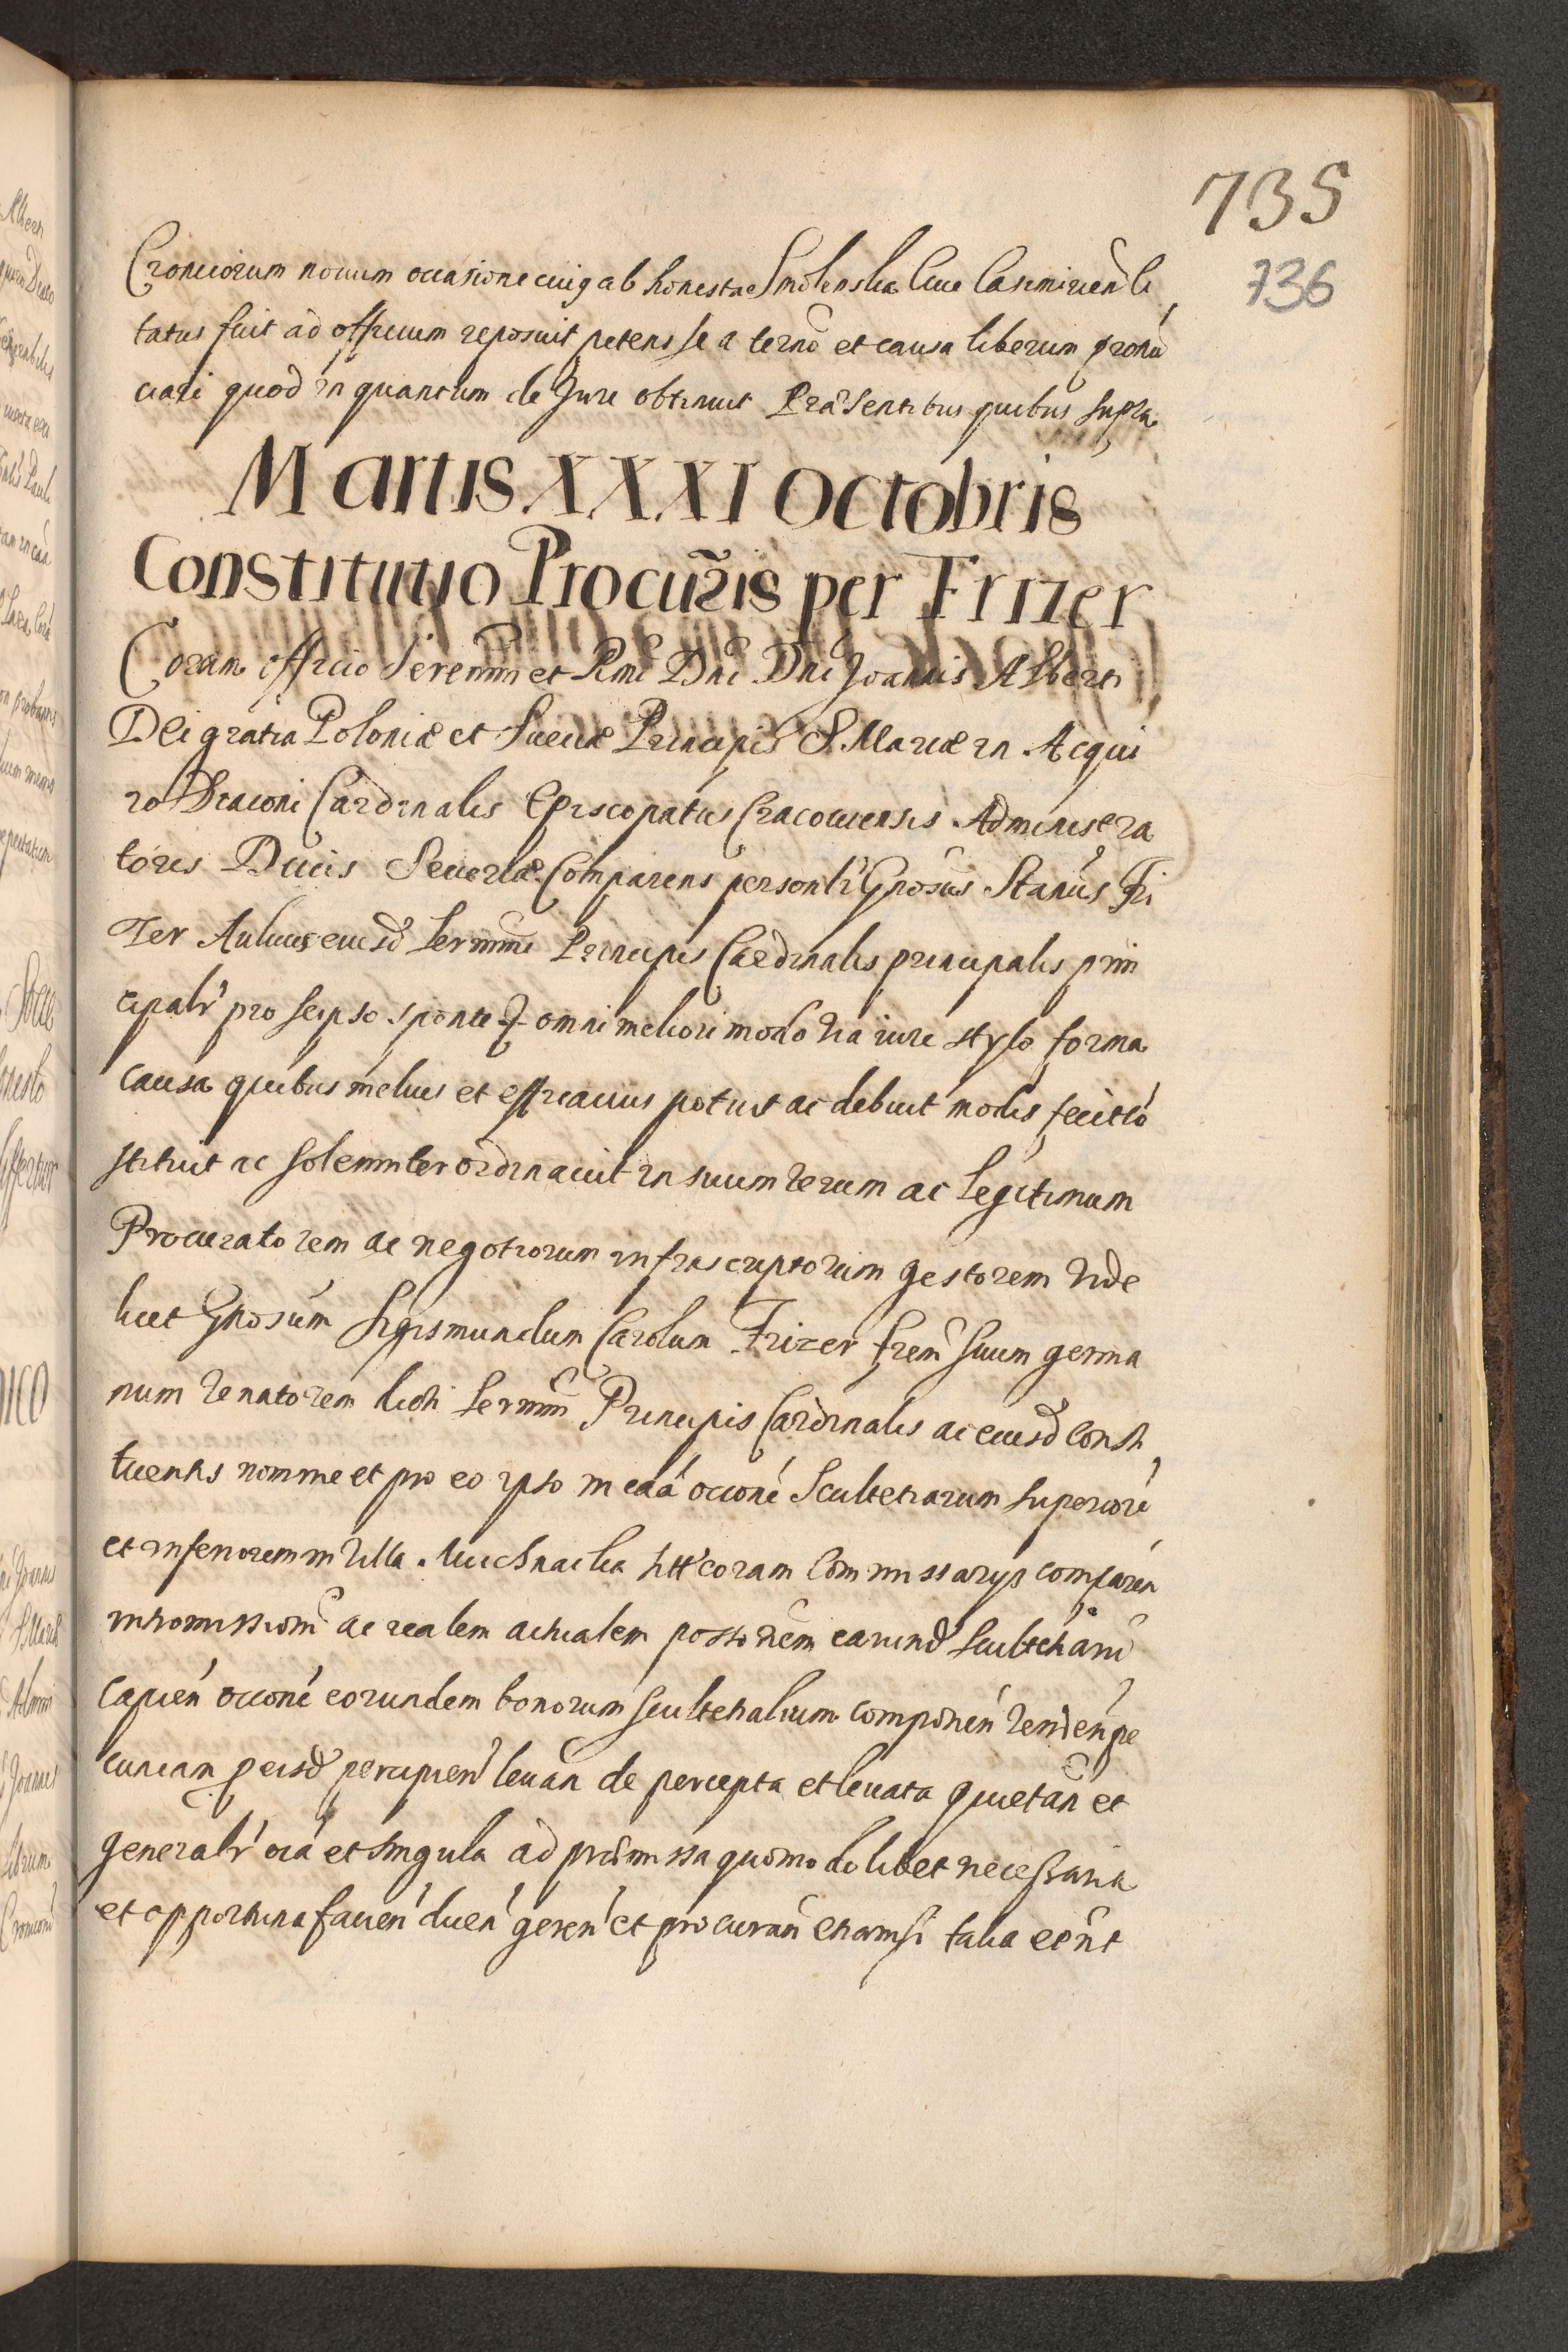 735
736
Croniciorum novum occasione cuius ab honesta Smolenska Cive Casimirien ci
tatus fuit ad officium reposuit petens se a termo et causa liberum pronu
ciari quod in quantum de Jure obtinuit Præsentibus quibus supra
Martis XXXI Octobris
Constitutio Procuris per Frizer
Coram officio Serenmi et Rmi Dni Dni Joannis Alberti
Dei gratia Poloniæ et Sueciæ Principis S. Mariæ in Acqui
ro Diaconi Cardinalis Episcopatus Cracoviensis Administra
toris Ducis Severiæ Comparens personlr Gnosus Stanus Fri
zer Aulicus eiusd Sermmi Principis Cardinalis principalis prin
cipalr pro seipso sponte & omni meliori modo via iure stylo forma
causa quibus melius et efficacius potuit ac debuit modis fecit co
stituit ac solemniter ordinavit in suum verum ac legitimum
Procuratorem ac negotiorum infrascriptorum gestorem vide
licet Gnosum Sigismundum Carolum Frizer frem suum germa
num Venatorem dicti Sermmi Principis Cardinalis ac eiusd consti
tuentis nomine et pro eo ipso in caa occone Scultetiarum superiore
et inferiorem in villa coram Commissarys comparen
intromissione ac realem actualem possonem earund scultetiaru
capien occone eorundem bonorum scultetialium componen venden pe
cuniam p eisd percipien levan de percepta et levata quietan et
generalr oia et singula ad præmissa quomodolibet necessaria
et opportuna facien dicen geren et procuran etiamsi talia eent